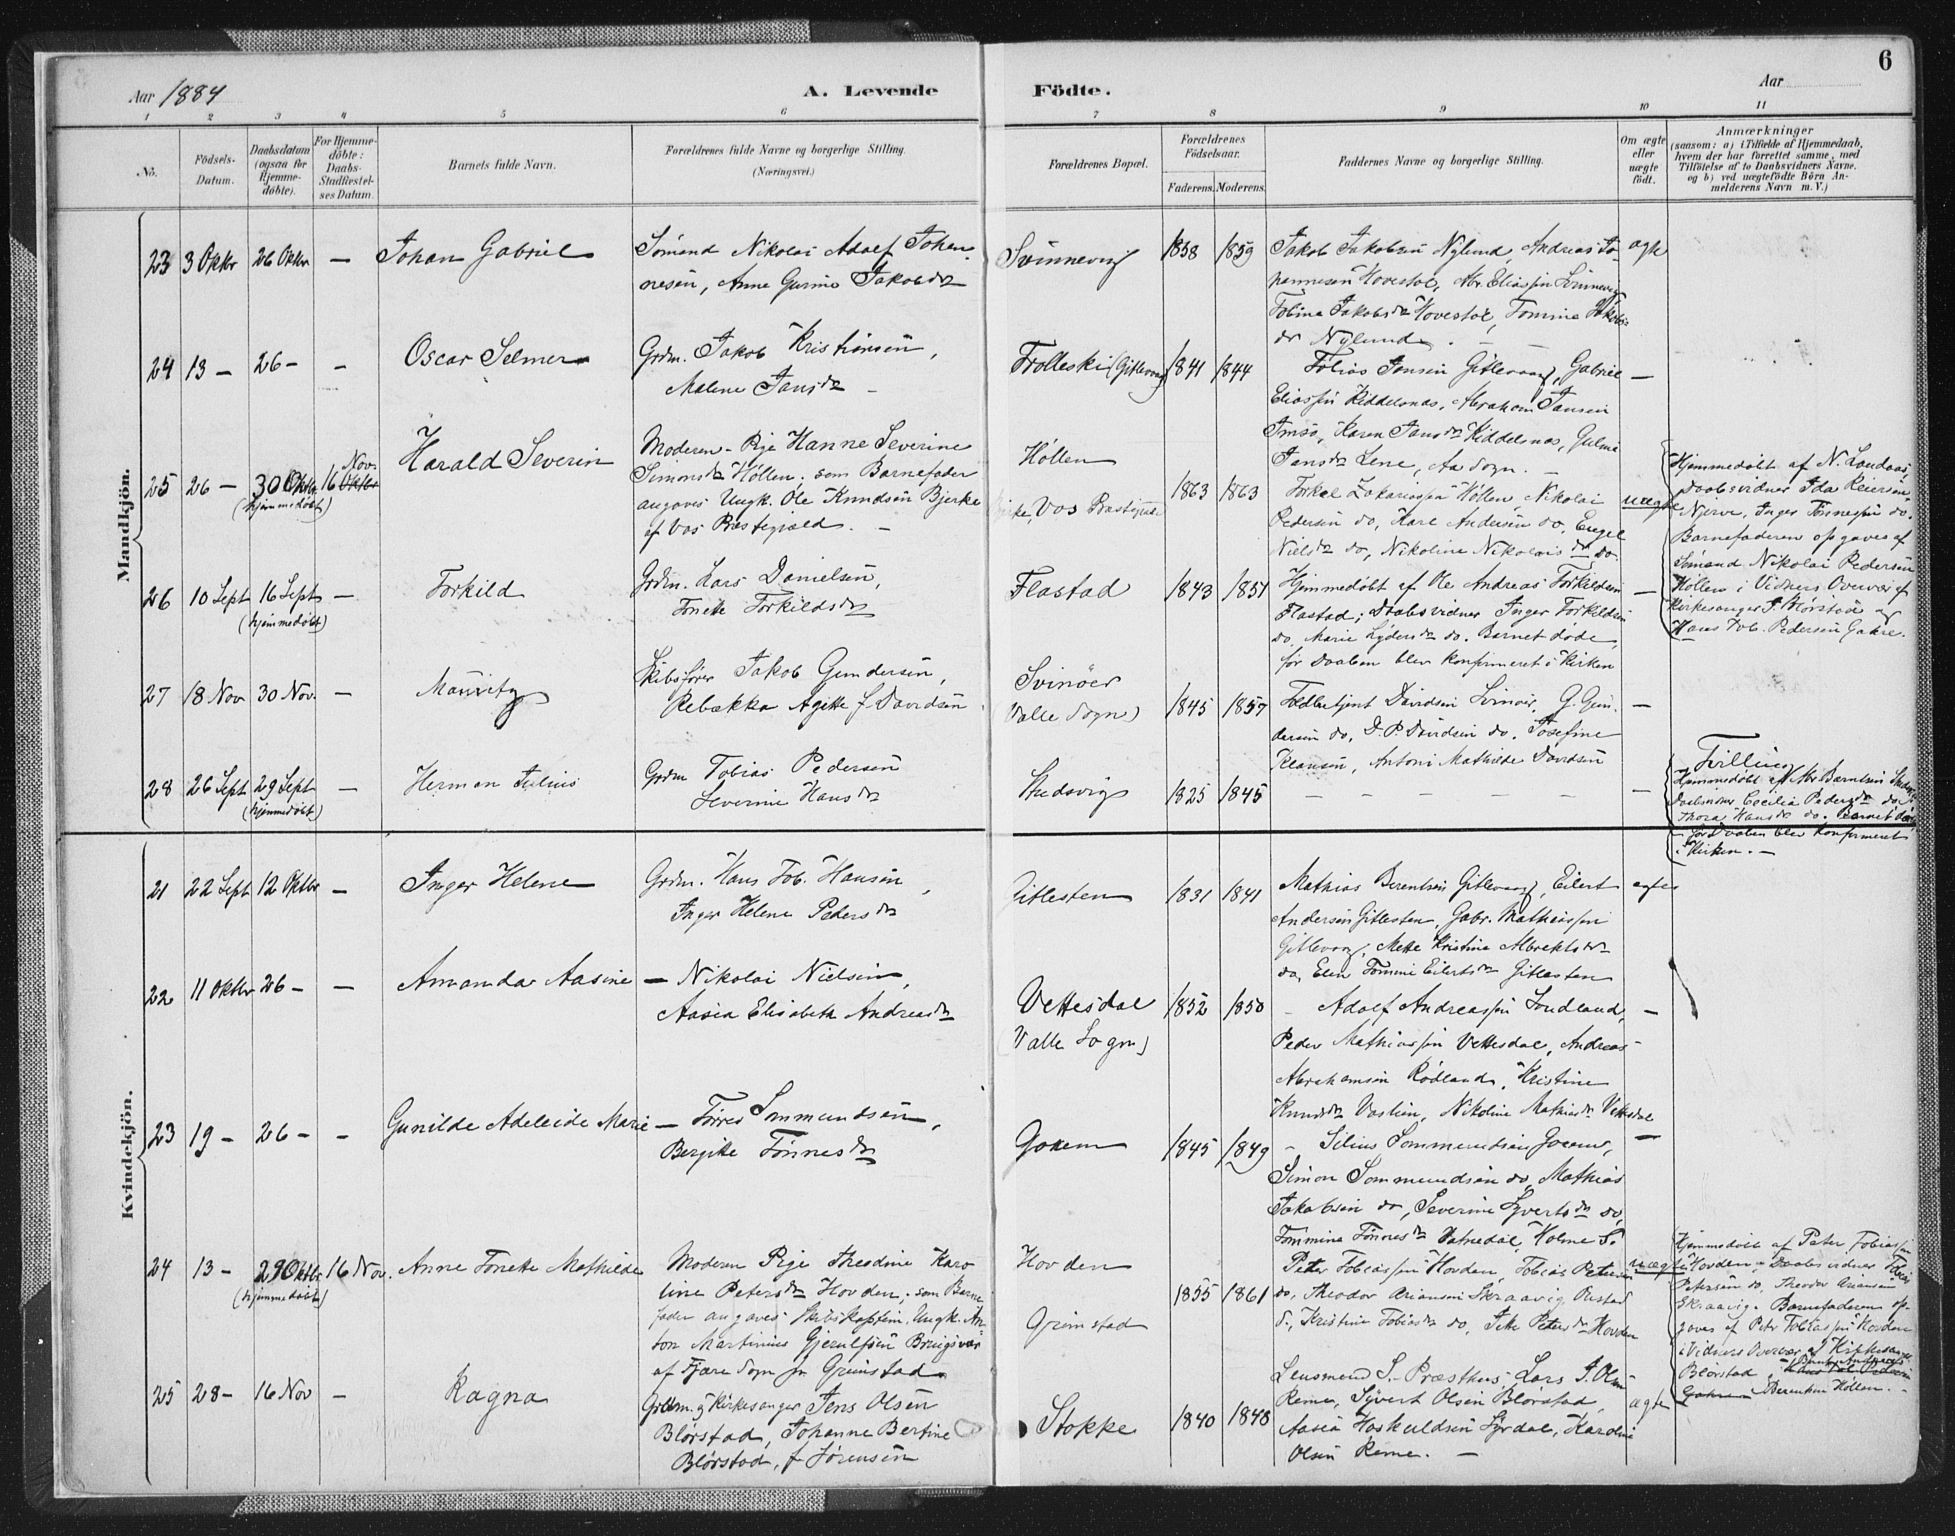 Aar 1884
A. Levende
Födte.
Aar
6
1 2 3 4 5 6 7 8 9 10 11
No.
Födsels-
Datum.
Daabsdatum
(ogsaa for
Hjemme-
döbte).
For Hjemme-
döbte:
Daabs-
Stadfæstel-
ses Datum.
Barnets fulde Navn.
Forældrenes fulde Navne og borgerlige Stilling.
(Næringsvei.)
Forældrenes Bopæl.
Forældrenes
Födselsaar.
Faderens. Moderens.
Faddernes Navne og borgerlige Stilling.
Om ægte
eller
uægte
födt.
Anmærkninger
(saasom: a) i Tilfælde af Hjemmedaab,
hvem der har forrettet samme, med
Tilföielse af to Daabsvidners Navne.
og b) ved uægtefödte Börn An-
melderens Navn m. V.)
Mandkjön.
23 3 Oktbr 26 Oktbr — Johan Gabriel
Sømand Nikolai Adolf Johan-
nesen, Anne Gurine Jakobsdr
Svinnevig 1858 1859
Jakob Jakobsen Nylund, Andreas Jo-
hannesen Hovestol, Abr. Eliassen Svinnevig
Tobine Jakobsdr Hovestol, Tomine Jakobs-
dr Nylund. — —
ægte
24 13 — 26 — — Oscar Selmer
Grdm. Jakob Kristiansen,
Malene Jansdr —
Trolleski (Gitlevaag) 1841 1844
Tobias Jansen Gitlevaag, Gabriel —
Eliassen Kiddelsnæs, Abraham Jansen
Imsø, Karen Jansdr Kiddelsnæs, Guline
Jansdr Lene, Aa Sogn. —
25 26 — 30 Oktbr (hjemmedøbt) 16 Nov. Oktbr Harald Severin
Moderen - Pige Hanne Severine
Simonsdr Høllen, som Barnefader
angaves Ungk. Ole Knudsen Bjerke
af Vos Præstegjæld. —
Høllen
Bjerke, Vos Præstegjæld
1863 1863
Torkel Zakariassen Høllen, Nikolai
Pedersen do, Karl Andersen do, Engel
Nielsdr do, Nikoline Nikolaisdr do.
uægte
Hjemmedøbt af N. Landaas,
Daabsvidner Ida Reiersen
Njerve, Inger Tønnessen do.
Barnefaderen opgaves af
Sømand Nikolai Pedersen
Høllen i Vidners Overvær af
Kirkesanger J. Blørstad og
Hans Tob. Pedersen Gahre.
26 10 Sept 16 Sept (hjemmedøbt) — Torkild
Grdm. Lars Danielsen,
Tonette Torkildsdr
Flastad 1843 1851
Hjemmedøbt af Ole Andreas Torkildsen —
Flastad; Daabsvidner Inger Torkildsen
do, Marie Lydersdr do. Barnet døde
før Daaben blev konfirmeret i Kirken
27 18 Nov 30 Nov. — Mauritz
Skibsfører Jakob Gundersen,
Rebekka Agethe f. Davidsen
Svinøer
(Valle Sogn) 1845 1857
Toldbetjent Davidsen Svinøer, G. Gun- —
dersen do, D. P. Davidsen do. Josefine
Klausen, Antoni Mathilde Davidsen
28 26 Sept 29 Sept (hjemmedøbt) — Herman Julius
Grdm Tobias Pedersen
Severine Hansdr
Skedsvig 1825 1845 — — — — — — —
Tvilling
Hjemmedøbt af Abr. Berntsen Skedsvig
Daabsvidner Cecilia Pedersdr do,
Thora Hansdr do. Barnet døde
før Daaben blev konfirmeret
i Kirken. —
Kvindekjön.
21 22 Sept 12 Oktbr — Inger Helene
Grdm. Hans Tob. Hansen,
Inger Helene Pedersdr
Gitlesten 1831 1841
Mathias Berentsen Gitlevaag, Eilert
Andersen Gitlesten, Gabr. Mathiassen
Gitlevaag, Mette Kristine Albrektsdr
do, Elen Tomine Eilertsdr Gitlesten
ægte
22 11 Oktbr 26 — — Amanda Aasine
— Nikolai Nielsen,
Aasea Elisabeth Andreasdr
Vettesdal
(Valle Sogn) 1852 1850
— Adolf Andreassen Sondland, —
Peder Mathiassen Vettesdal, Andreas
Abrahamsen Rødland, Kristine
Knudsdr Voslien, Nikoline Mathiasdr Vettesdal
23 19 — 26 — — Gunilde Adeleide Marie
— Torres Sommundsen,
Bergitte Tønnesdr
Goksem 1845 1849
— Silius Sommundsen Gosem, —
Simon Sommundsen do, Mathias
Jakobsen do, Severine Syvertsdr do,
Tommine Tønnesdr Vatnedal, Holme S.
24 13 — 29 Oktbr (hjemmedøbt) 16 Nov. Anne Tonette Mathilde
Moderen Pige Theodine Karo-
line Petersdr Hovden, som Barne-
fader angaves Skibskaptein, Ungk. An-
ton Martinius Gjerulfsen Bringsvær
af Fjære Sogn pr Grimstad
Hovden
Grimstad
1855 1861
Peter Tobiassen Hovden, Tobias Petersen
do, Theodor Ariansen Skraavig, Rustad
S., Kristine Tobiasdr do, Petersdr Hovden
uægte
Hjemmedøbt af Peter Tobiassen
Hovden. Daabsvidner Tobias
Petersen do, Theodor Ariansen
Skraavig. Barnefaderen op-
gaves af Peter Tobiassen Hovden
i Vidners Overvær af Kirkesanger
Blørstad
Berentsen Høllen. —
25 28 — 16 Nov — Ragna
Grdm. og Kirkesanger Jens Olsen
Blørstad, Johanne Bertine
Blørstad, f. Jørensen
Stokke 1840 1848
Lensmand S. Præsthus, Lars J. Olsen
Reme, Syvert Olsen Blørstad,
Aasea Hoskuldsen Syrdal, Karoline
Olsen Reme. —
ægte